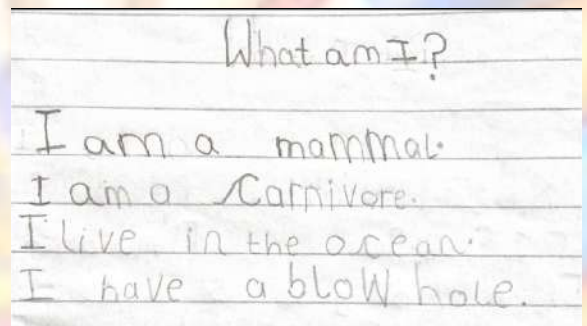 What am I?
I am a mammal.
I am a Carnivore.
I live in the ocean.
I have a blow hole.